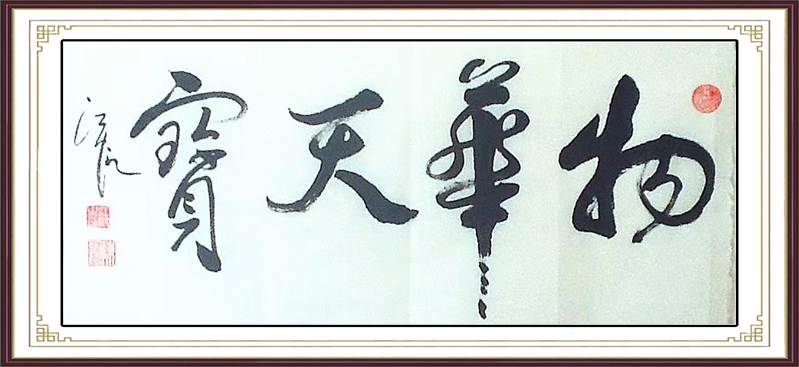 物華天寶